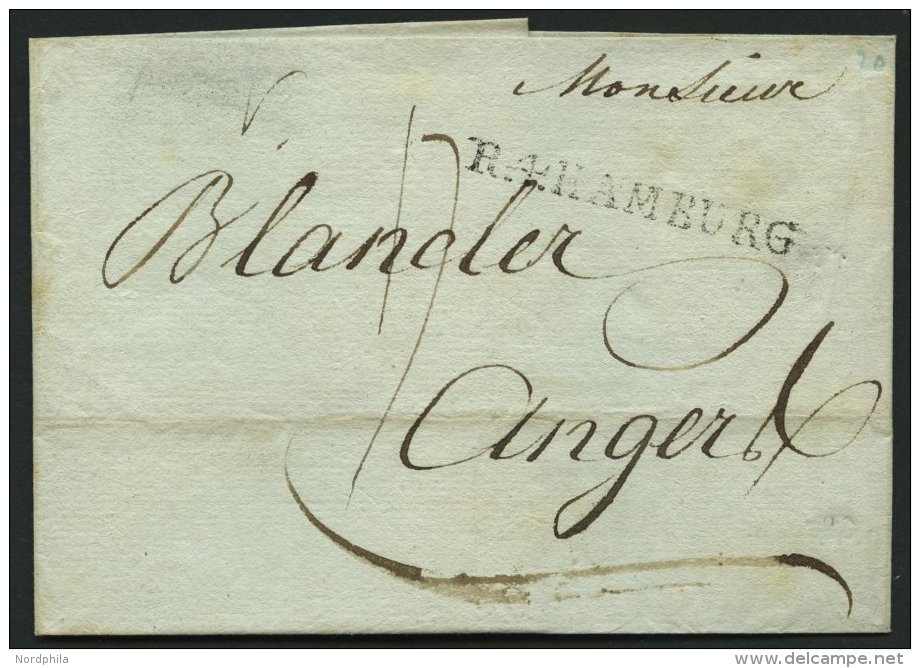 Monsieur
R.4.HAMBURG
Blancler
Angers
20
Nordphila
www.delcampe.net